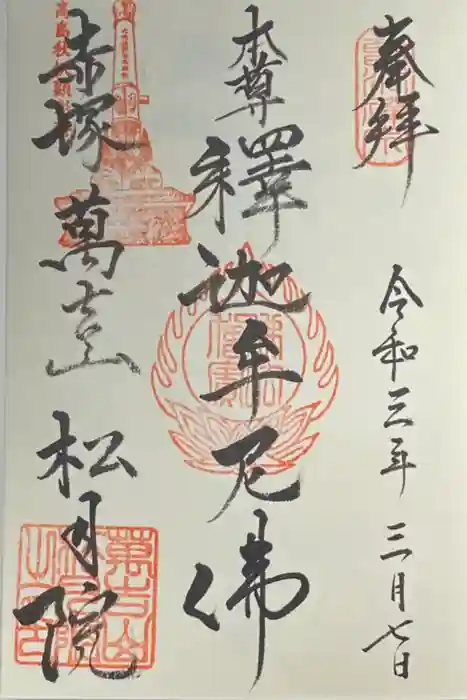 奉拝
令和三年 三月七日
本尊 釋迦牟尼佛
赤塚 萬吉山 松月院
高島秋
萬吉山